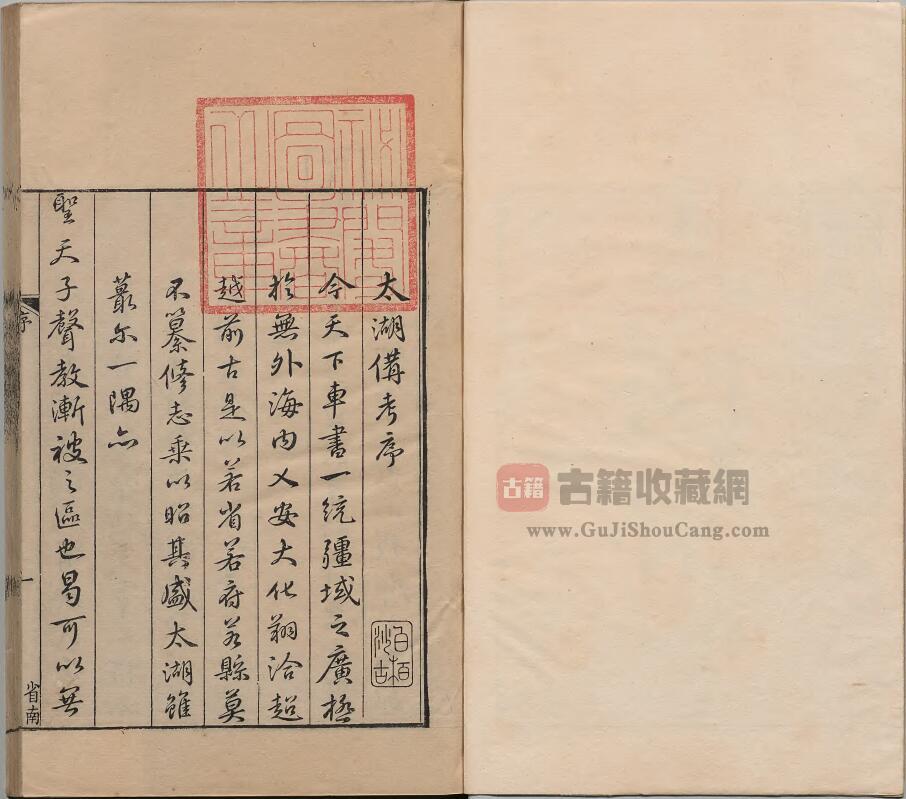 太湖備考序
今天下車書一統疆域之廣極
於無外海內乂安大化翔洽超
越前古是以若省若府若縣莫
不纂修志乘以昭其盛太湖雖
蕞尔一隅亦
聖天子聲教漸被之區也曷可以無
序
一
省南
古籍
古籍收藏網
www.GuJiShouCang.com